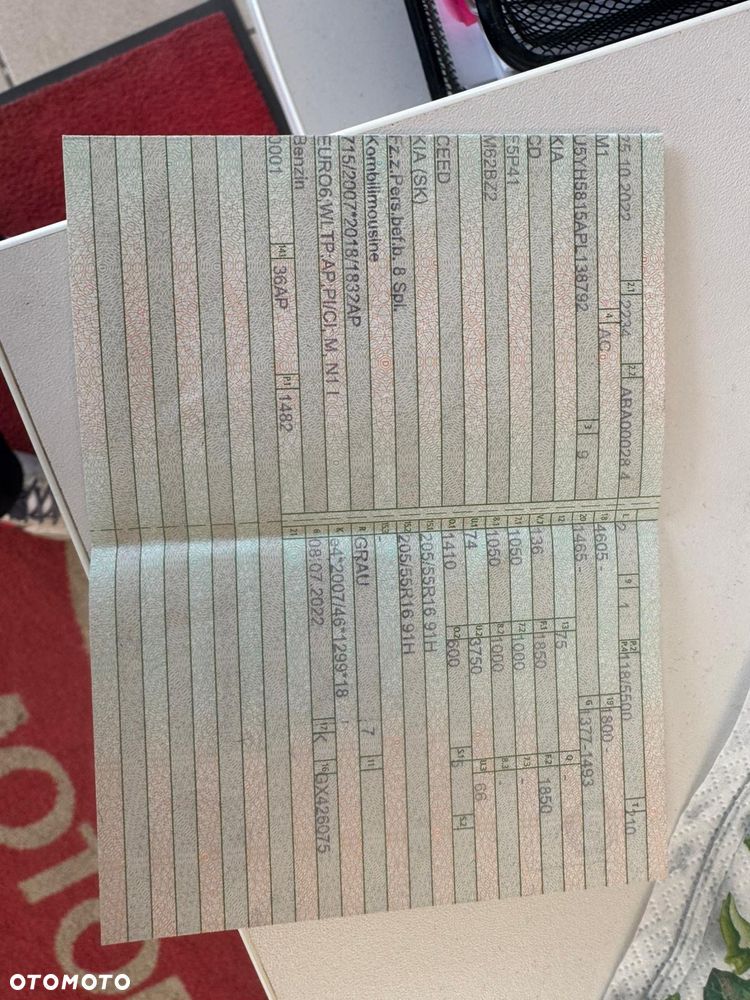 25.10.2022 2.1 2234 2.2 ABA00028 4
M1 4 AC
U5YH5815APL138792 3 9
KIA
CD
F5P41
M62BZ2
CEED
KIA (SK)
Fz.z.Pers.bef.b. 8 Spl.
Kombilimousine
715/2007*2018/1832AP
EURO6;WLTP;AP;PI/CI; M, N1 I
Benzin
0001 14.1 36AP P.1 1482
L 2 9 1 P.2 P.4 118/5500 T 210
18 4605- 19 1800-
20 1465- G 1377-1493
12 - 13 75 Q -
V.7 136 F.1 1850 F.2 1850
7.1 1050 7.2 1000 7.3 -
8.1 1050 8.2 1000 8.3 -
U.1 74 U.2 3750 U.3 66
O.1 1410 O.2 600 S.1 5 S.2 -
15.1 205/55R16 91H
15.2 205/55R16 91H
15.3 -
R GRAU 11 7
K e4*2007/46*1299*18
6 08.07.2022 17 K 16 QX426075
21
MOTO
OTOMOTO